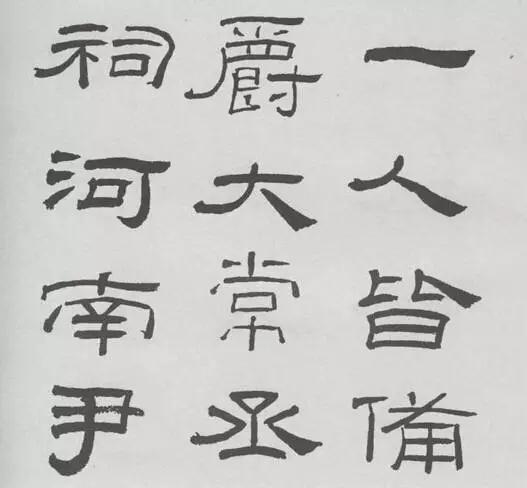 一人皆備
爵大常丞
祠河南尹